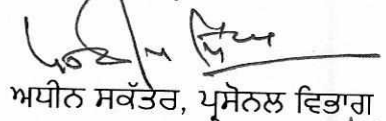 ਅਧੀਨ ਸਕੱਤਰ, ਪ੍ਰਸੋਨਲ ਵਿਭਾਗ